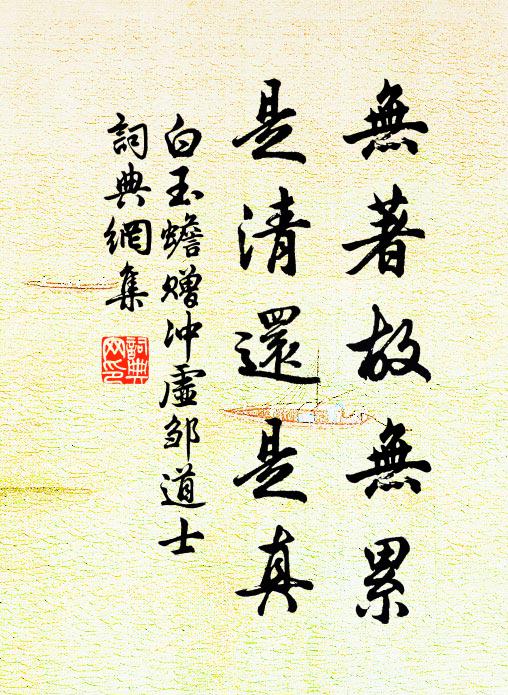 無著故無累
是清還是真
白玉蟾赠冲虛邹道士
詞典網集
詞典网印